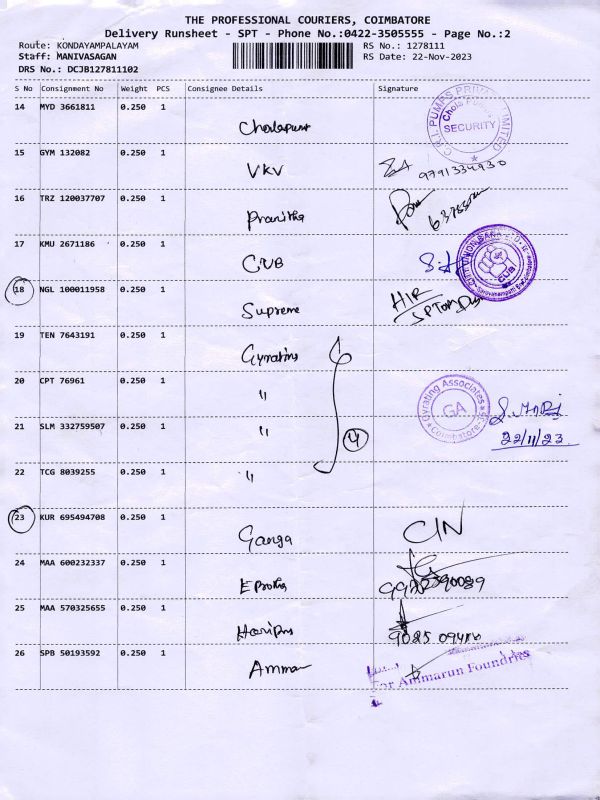 THE PROFESSIONAL COURIERS, COIMBATORE
Delivery Runsheet - SPT - Phone No.:0422-3505555 - Page No.:2
Route: KONDAYAMPALAYAM RS No.: 1278111
Staff: MANIVASAGAN RS Date: 22-Nov-2023
DRS No.: DCJB127811102
S No Consignment No Weight PCS Consignee Details Signature
14 MYD 3661811 0.250 1
C.R.I. PUMPS PRIVATE LIMITED SECURITY
15 GYM 132082 0.250 1 VKV
9791334930
16 TRZ 120037707 0.250 1 Pranitha
17 KMU 2671186 0.250 1 CUB
CITY UNION BANK LTD. CUB
18 NGL 100011958 0.250 1 Supreme
19 TEN 7643191 0.250 1 Gyrating
20 CPT 76961 0.250 1 "
Gyrating Associates GA Coimbatore
21 SLM 332759507 0.250 1 " 4
22/11/23
22 TCG 8039255 0.250 1 "
23 KUR 695494708 0.250 1 Ganga
24 MAA 600232337 0.250 1
25 MAA 570325655 0.250 1
26 SPB 50193592 0.250 1 Amman
For Ammarun Foundries